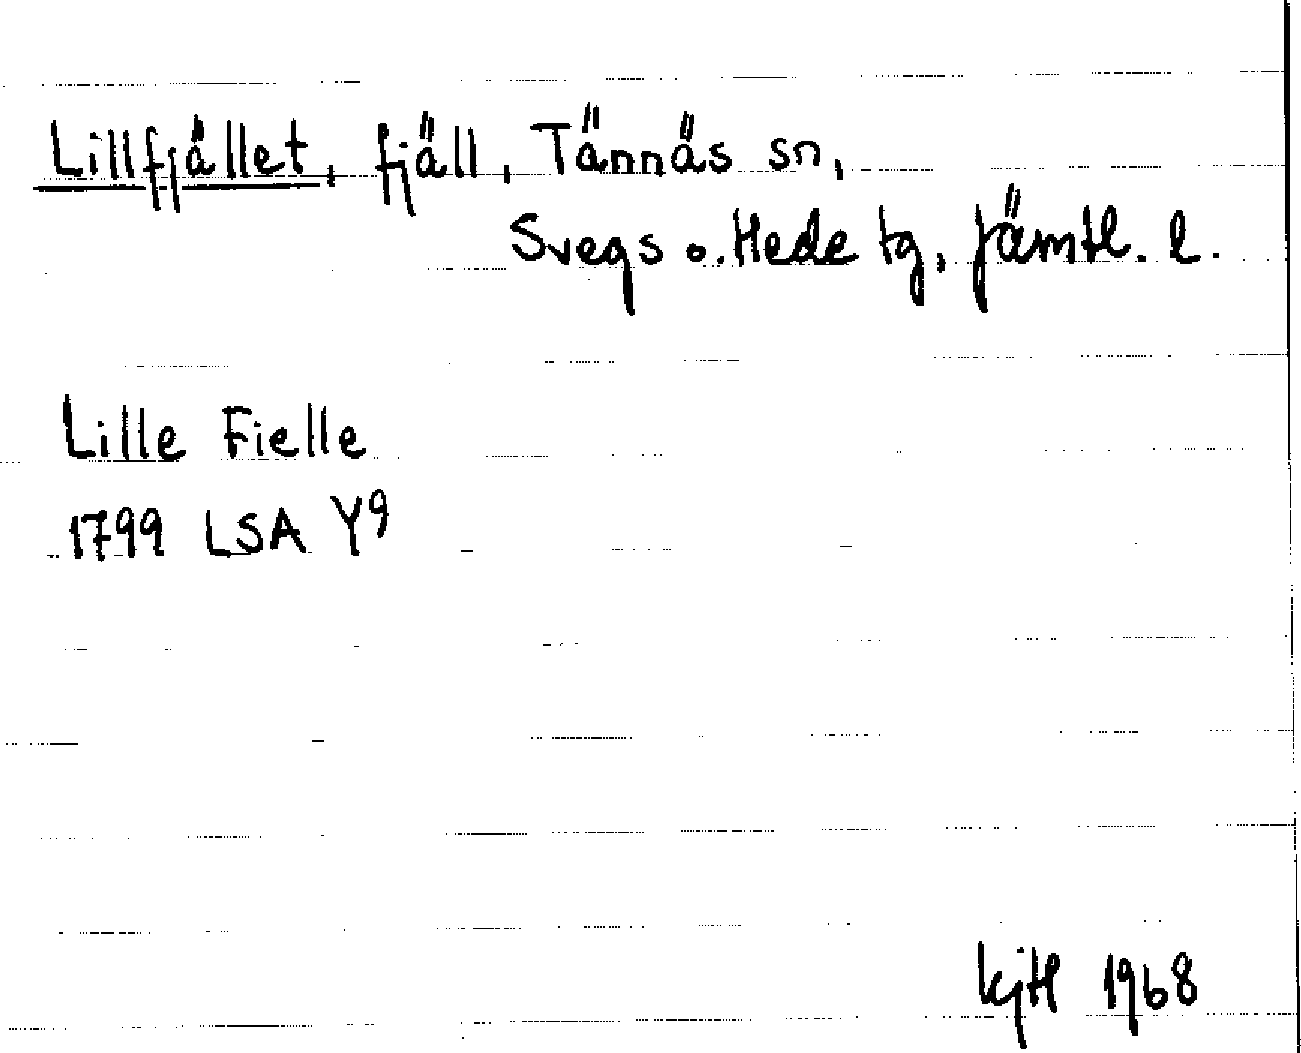 Lillfjället, fjäll, Tännäs sn,
Svegs o. Hede tg, Jämtl. l.
Lille Fielle
1799 LSA Y9
kjtl 1968